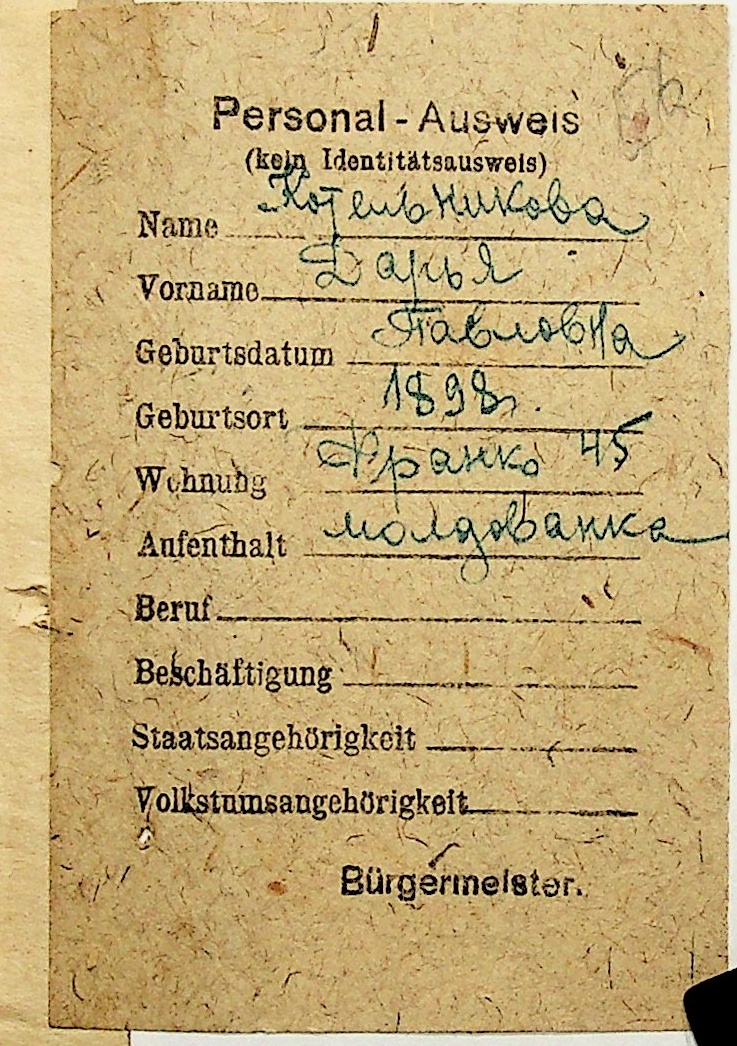 Personal - Ausweis
(kein Identitätsausweis)
Name Котельникова
Vorname Дарья
Geburtsdatum Павловна
Geburtsort 1898г.
Wohnung Франко 45
Aufenthalt молдованка
Beruf
Beschäftigung
Staatsangehörigkeit
Volkstumsangehörigkeit
Bürgermeister.